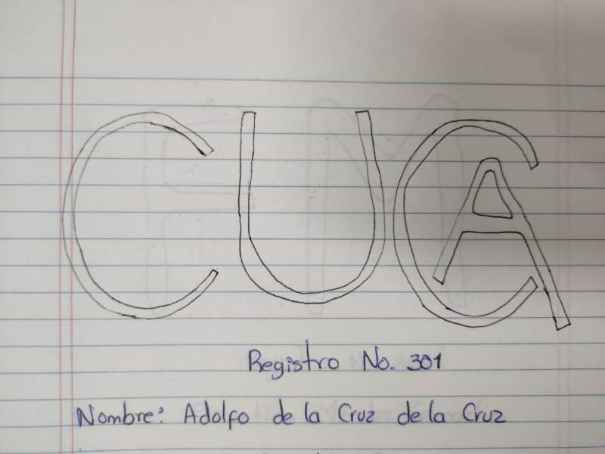 CUCA
Registro No. 301
Nombre: Adolfo de la Cruz de la Cruz